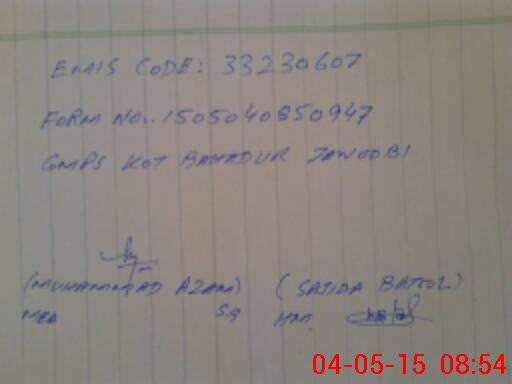 EMIS CODE: 33230607
FORM NO.. 1505040850947
GMPS KOT BAHADUR JANOOBI
(MUHAMMAD AZAM) (SAJIDA BATOOL)
MEA HM.
04-05-15 08:54